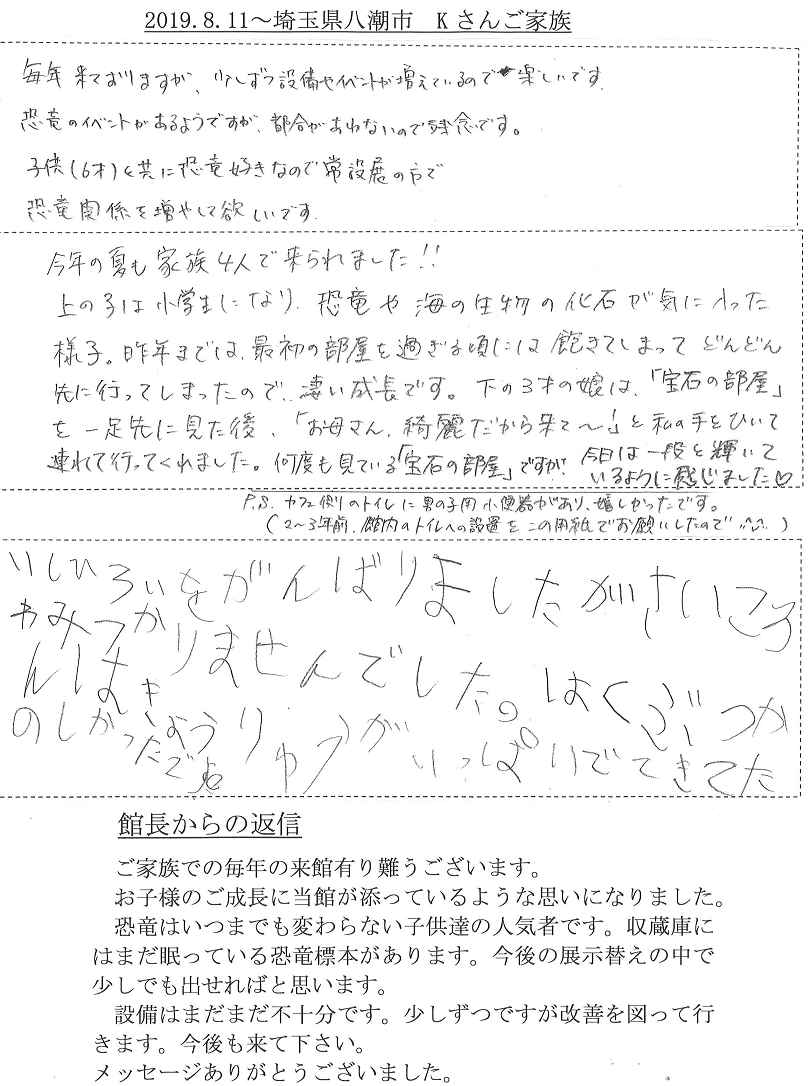 2019.8.11～埼玉県八潮市　Kさんご家族
毎年来ておりますが、少しずつ設備やイベントが増えているので楽しいです。
恐竜のイベントがあるようですが、都合があわないので残念です。
子供(6才)と共に恐竜好きなので常設展の方で
恐竜関係を増やして欲しいです。
今年の夏も家族4人で来られました!!
上の子は小学生になり、恐竜や海の生物の化石が気に入った
様子。昨年までは、最初の部屋を過ぎる頃には飽きてしまってどんどん
先に行ってしまったので、凄い成長です。下の3才の娘は、「宝石の部屋」
を一足先に見た後、「お母さん、綺麗だから来て～!」と私の手をひいて
連れて行ってくれました。何度も見ている「宝石の部屋」ですが、今日は一段と輝いて
いるように感じました♡
P.S. カフェ側のトイレに男の子用小便器があり、嬉しかったです。
(2～3年前、館内のトイレへの設置をこの用紙でお願いしたので)
いしひろいをがんばりましたがさいころ
わみつかりませんでした。はくぶつか
んはきょうりゅうがいっぱいでてきてた
のしかったです
館長からの返信
ご家族での毎年の来館有り難うございます。
お子様のご成長に当館が添っているような思いになりました。
恐竜はいつまでも変わらない子供達の人気者です。収蔵庫に
はまだ眠っている恐竜標本があります。今後の展示替えの中で
少しでも出せればと思います。
設備はまだまだ不十分です。少しずつですが改善を図って行
きます。今後も来て下さい。
メッセージありがとうございました。